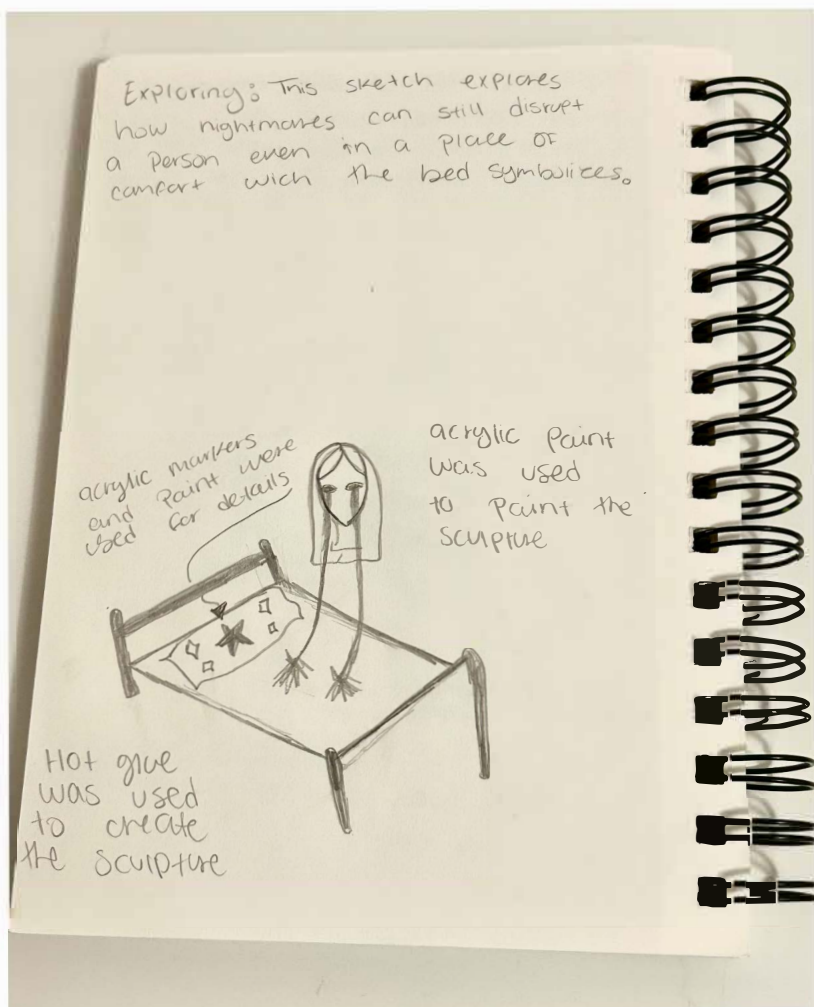 Exploring: This sketch explores
how nightmares can still disrupt
a person even in a place of
comfort wich the bed symbolizes.
acrylic markers
and paint were
used for details
acrylic paint
was used
to paint the
sculpture
Hot glue
was used
to create
the sculpture